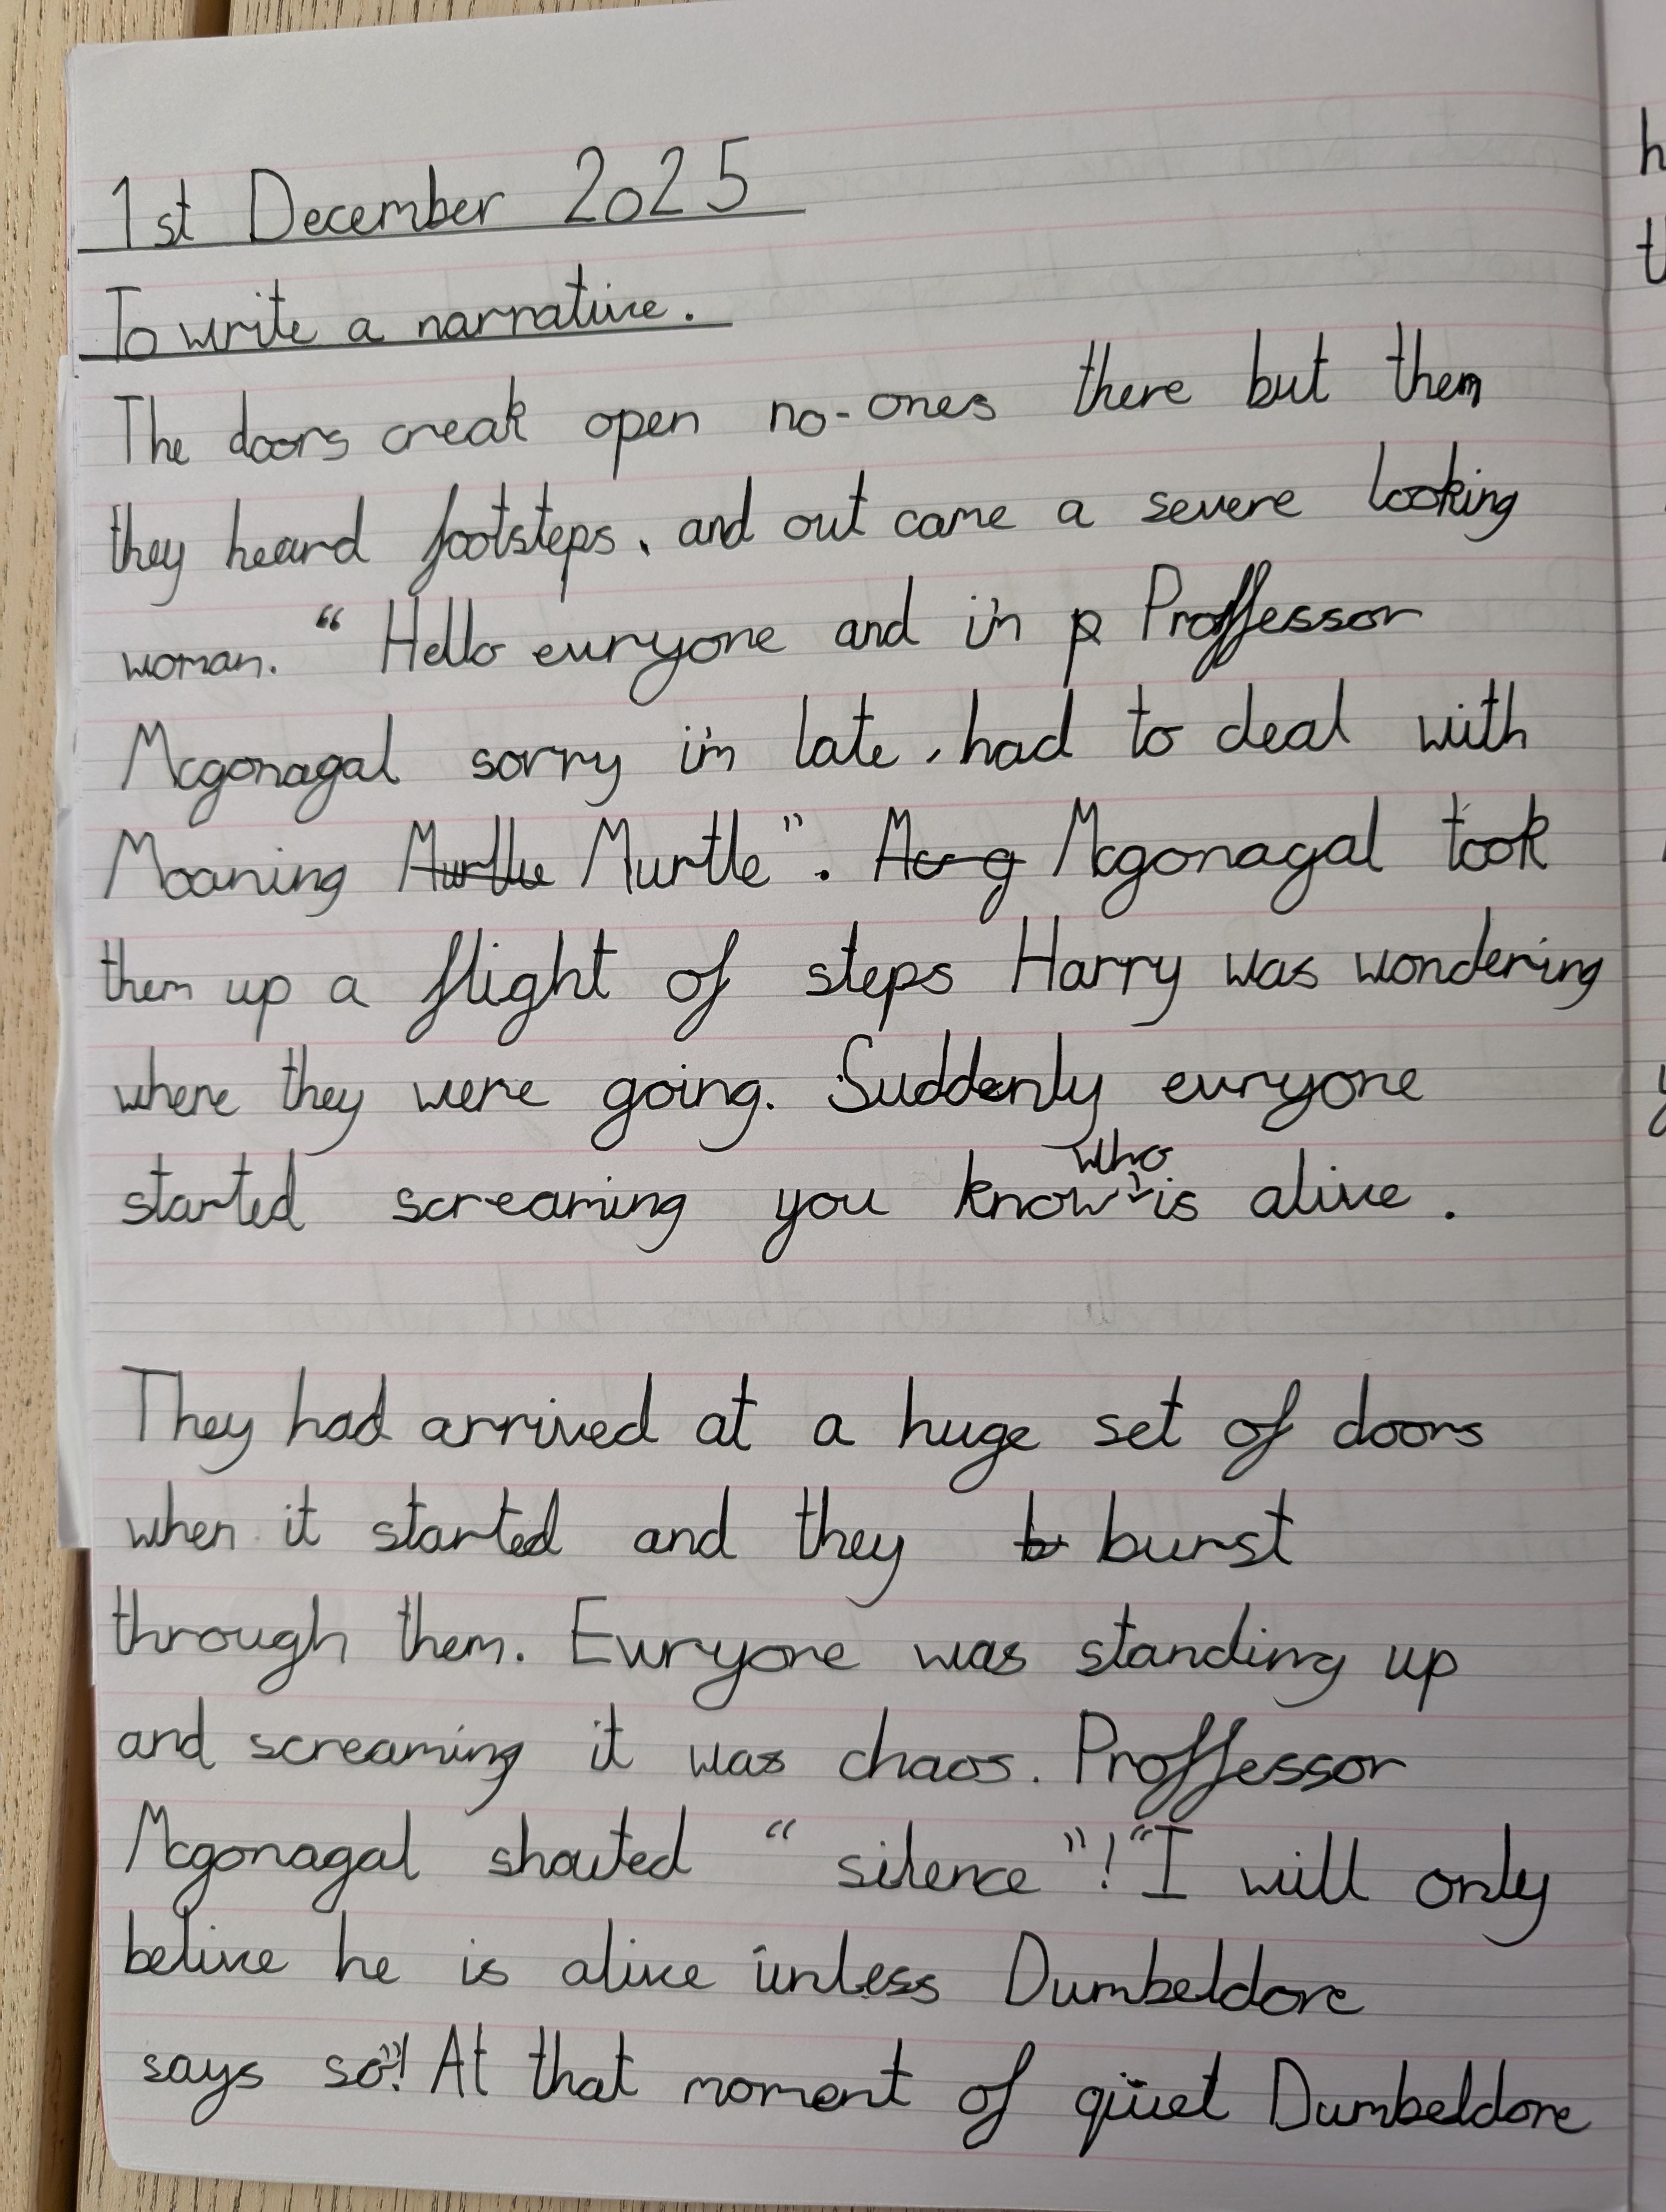 1st December 2025
To write a narrative.
The doors creak open no-ones there but them
they heard footsteps, and out came a severe looking
woman. “Hello euryone and i'm p Proffessor
Mcgonagal sorry i'm late, had to deal with
Moaning Murtle Murtle”. Mc g Mcgonagal took
them up a flight of steps Harry was wondering
where they were going. Suddenly euryone
started screaming you know who is alive.
They had arrived at a huge set of doors
when it started and they b burst
through them. Euryone was standing up
and screaming it was chaos. Proffessor
Mcgonagal shouted “silence”! “I will only
belive he is alive unless Dumbeldore
says so”! At that moment of quiet Dumbeldore